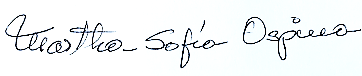 Martha Sofía Ospina